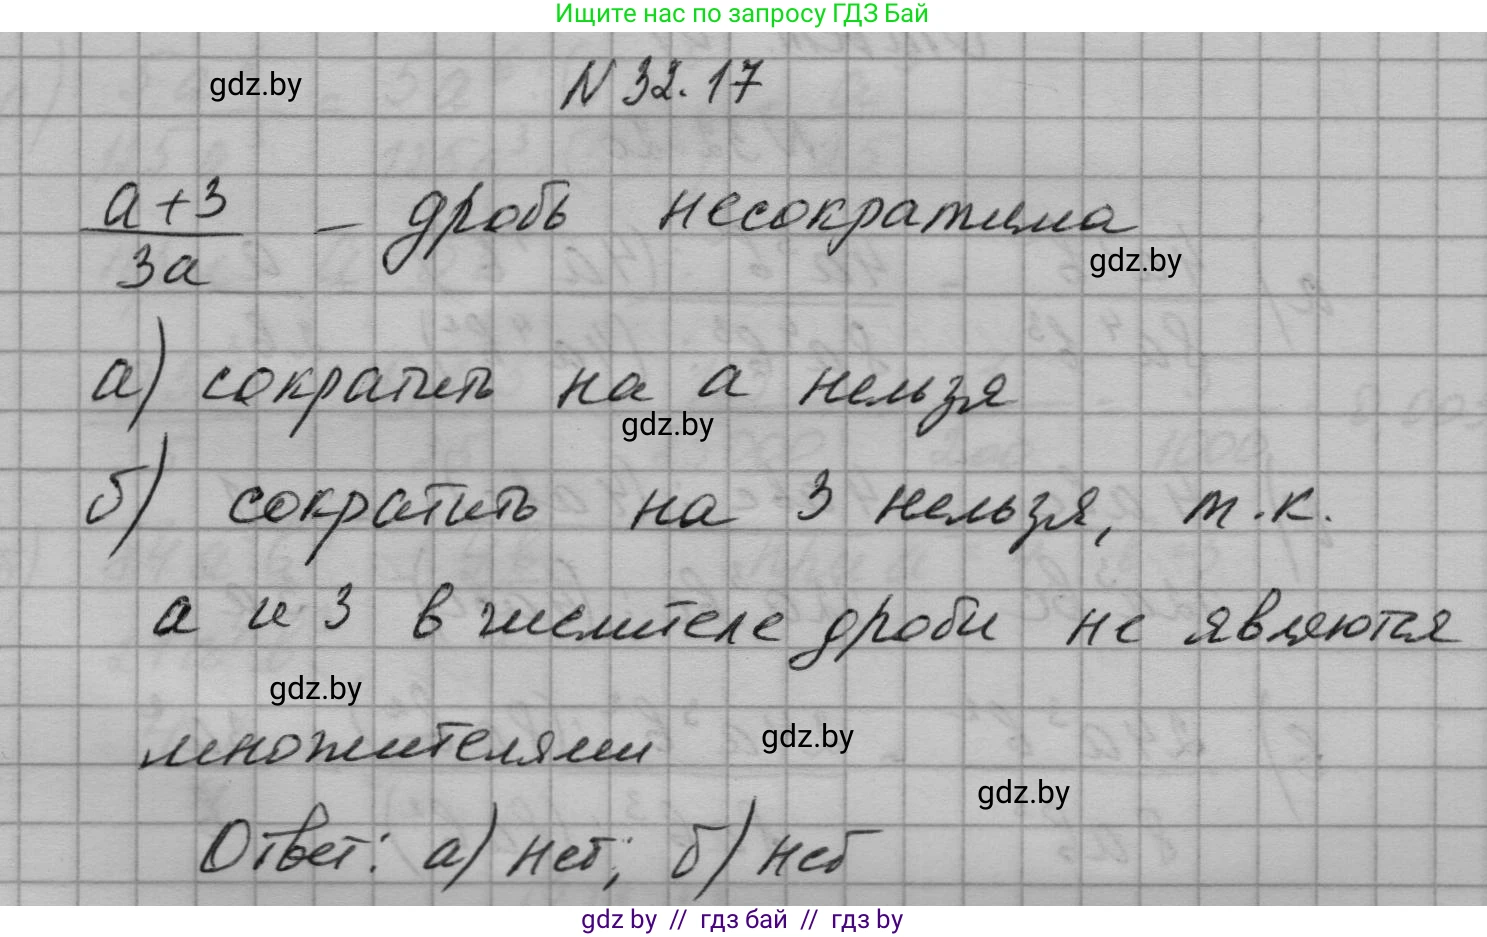 Ищите нас по запросу ГДЗ Бай
gdz.by
N 32.17
a+3
3a
– дробь несократима
gdz.by
а) сократить на a нельзя
gdz.by
б) сократить на 3 нельзя, т.к.
a и 3 в числителе дроби не являются
gdz.by
множителями
gdz.by
gdz.by
Ответ: а) нет; б) нет
gdz.by // гдз бай // гдз by